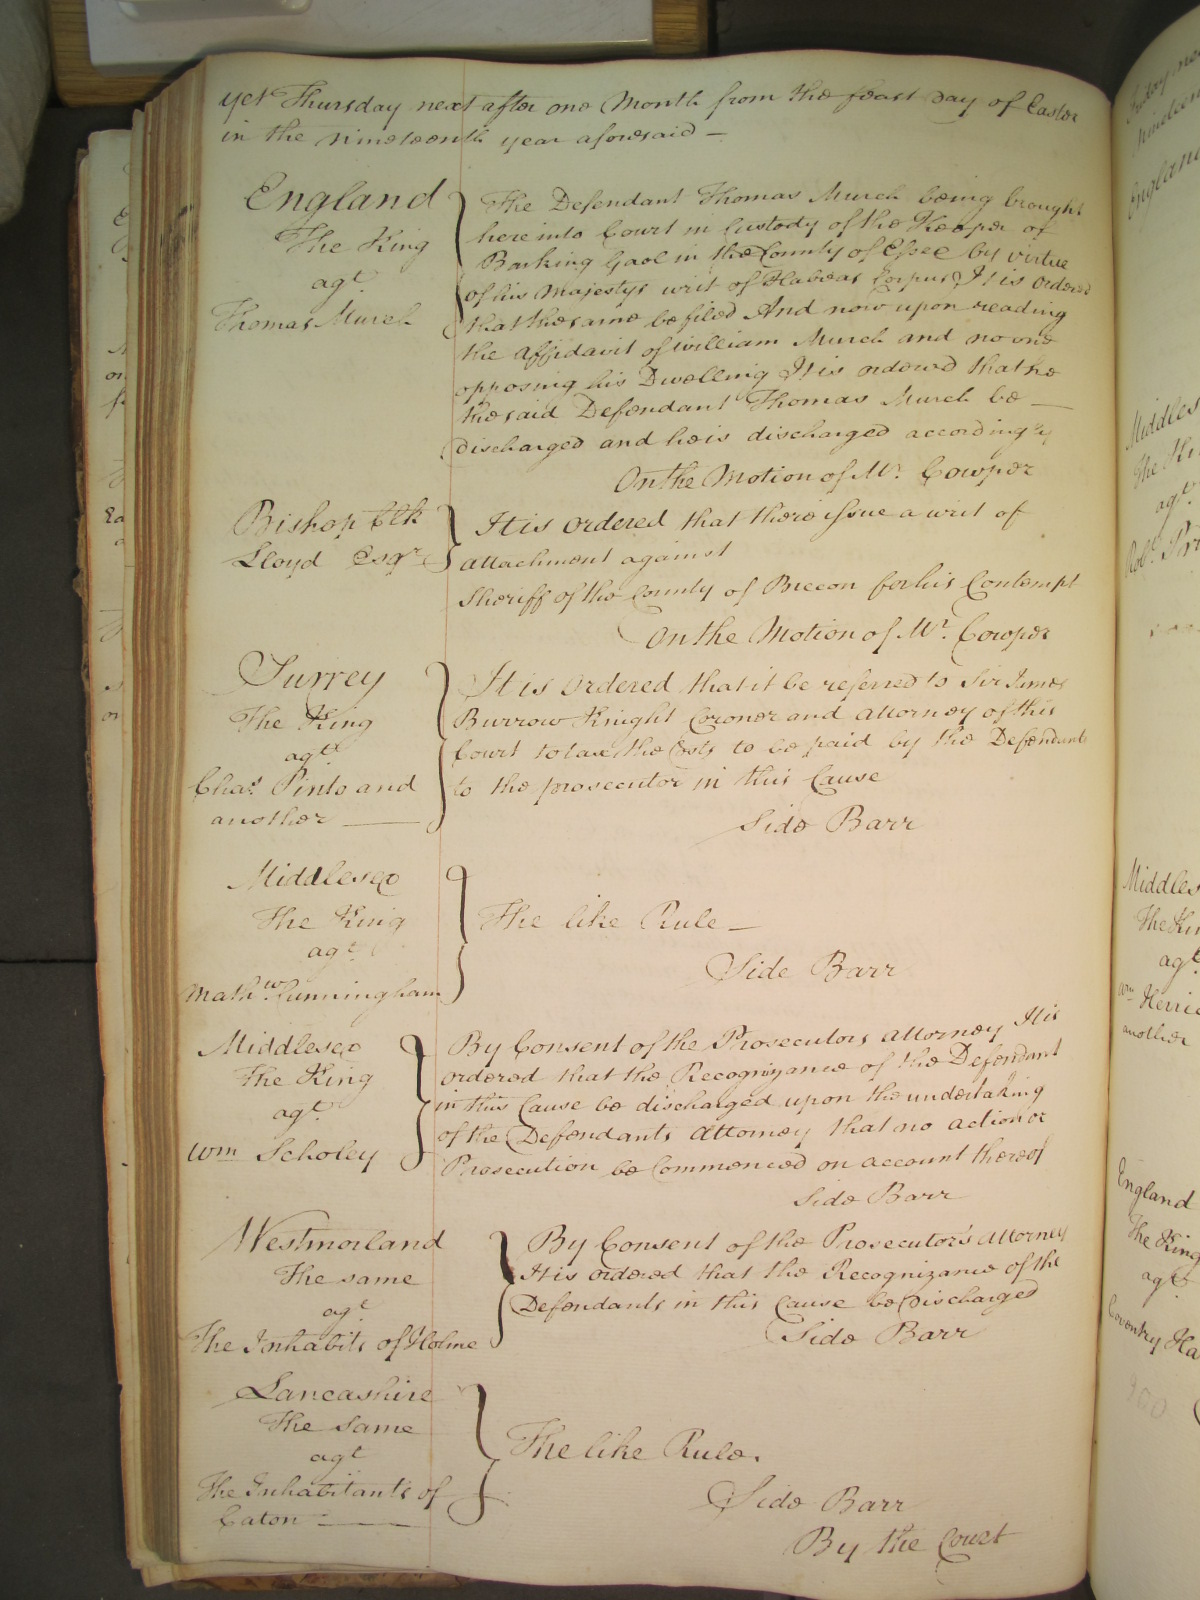 yet Thursday next after one Month from the feast Day of Easter
in the Nineteenth year aforesaid —
England
The King
agt.
Thomas Murch
The Defendant Thomas Murch being brought
here into Court in Custody of the Keeper of
Barking Gaol in the County of Essex by virtue
of his Majestys writ of Habeas Corpus It is ordered
that the same be filed And now upon reading
the affidavit of William Murch and no one
opposing his Dwelling It is ordered that he
the said Defendant Thomas Murch be —
discharged and he is discharged accordingly
On the Motion of Mr. Cowper
Bishop Clk
Lloyd Esqr.
It is ordered that there issue a writ of
attachment against
Sheriff of the County of Brecon for his Contempt
On the Motion of Mr. Cowper
Surrey
The King
agt.
Chas. Pinto and
another —
It is ordered that it be referred to Sir James
Burrow Knight Coroner and attorney of this
Court to tax the Costs to be paid by the Defendants
to the prosecutor in this Cause
Side Barr
Middlesex
The King
agt.
Mathw. Cunningham
The like Rule —
Side Barr
Middlesex
The King
agt.
Wm Scholey
By Consent of the Prosecutors attorney It is
ordered that the Recognizance of the Defendant
in this Cause be discharged upon the undertaking
of the Defendants attorney that no action or
Prosecution be Commenced on account thereof
Side Barr
Westmorland
The same
agt.
The Inhabits of Holme
By Consent of the Prosecutor's attorney
It is ordered that the Recognizance of the
Defendants in this Cause be discharged
Side Barr
Lancashire
The same
agt
The Inhabitants of
Caton —
The like Rule.
Side Barr
By the Court
England
Middles
The Ki
agt.
Robt. Pri
Middles
The Ki
agt.
Wm Herri
another
England
The King
agt.
Coventry Ha